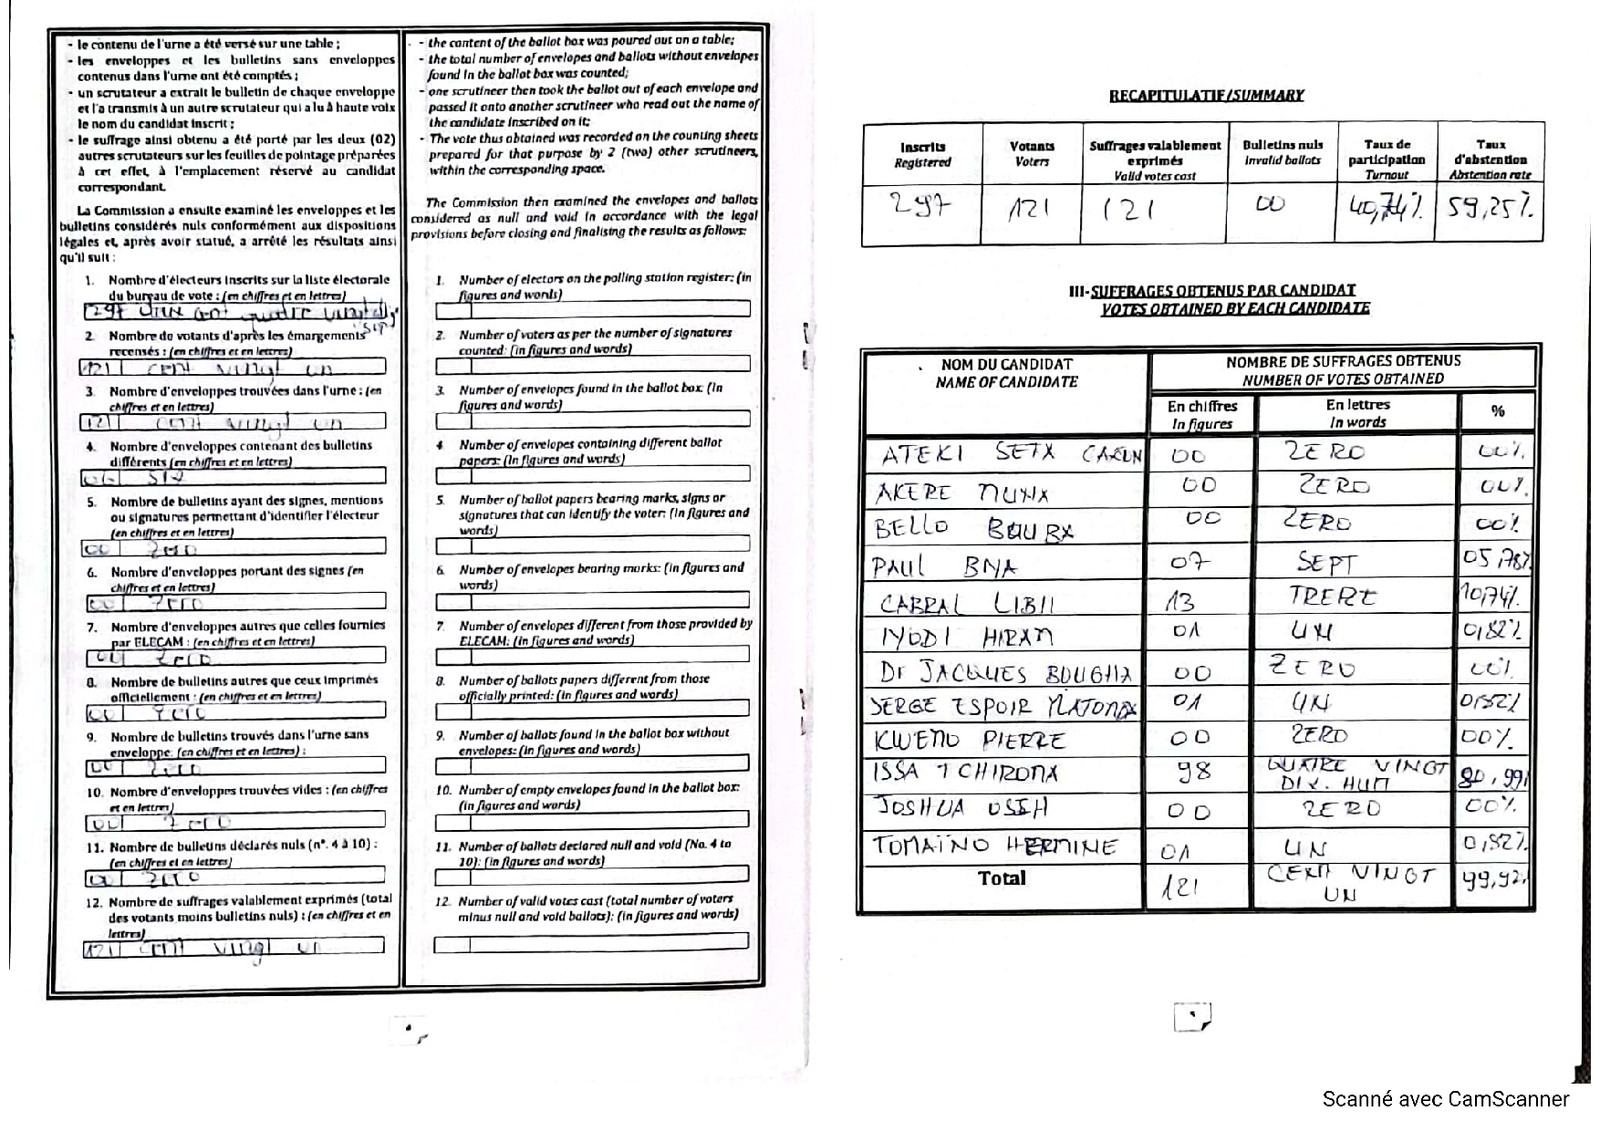 - le contenu de l'urne a été versé sur une table ;
- les enveloppes et les bulletins sans enveloppes
contenus dans l'urne ont été comptés ;
- un scrutateur a extrait le bulletin de chaque enveloppe
et l'a transmis à un autre scrutateur qui a lu à haute voix
le nom du candidat inscrit ;
- le suffrage ainsi obtenu a été porté par les deux (02)
autres scrutateurs sur les feuilles de pointage préparées
à cet effet, à l'emplacement réservé au candidat
correspondant.
La Commission a ensuite examiné les enveloppes et les
bulletins considérés nuls conformément aux dispositions
légales et, après avoir statué, a arrêté les résultats ainsi
qu'il suit :
1. Nombre d'électeurs inscrits sur la liste électorale
du bureau de vote : (en chiffres et en lettres)
297 deux cent quatre vingt dix
sept
2. Nombre de votants d'après les émargements
recensés : (en chiffres et en lettres)
121 cent vingt un
3. Nombre d'enveloppes trouvées dans l'urne : (en
chiffres et en lettres)
121 cent vingt un
4. Nombre d'enveloppes contenant des bulletins
différents (en chiffres et en lettres)
5. Nombre de bulletins ayant des signes, mentions
ou signatures permettant d'identifier l'électeur
(en chiffres et en lettres)
00 zero
6. Nombre d'enveloppes portant des signes (en
chiffres et en lettres)
00 zero
7. Nombre d'enveloppes autres que celles fournies
par ELECAM : (en chiffres et en lettres)
00 zero
8. Nombre de bulletins autres que ceux imprimés
officiellement : (en chiffres et en lettres)
00 zero
9. Nombre de bulletins trouvés dans l'urne sans
enveloppe: (en chiffres et en lettres) :
00 zero
10. Nombre d'enveloppes trouvées vides : (en chiffres
et en lettres)
00 zero
11. Nombre de bulletins déclarés nuls (n°. 4 à 10) :
(en chiffres et en lettres)
00 zero
12. Nombre de suffrages valablement exprimés (total
des votants moins bulletins nuls) : (en chiffres et en
lettres)
121 cent vingt un
- the content of the ballot box was poured out on a table;
- the total number of envelopes and ballots without envelopes
found in the ballot box was counted;
- one scrutineer then took the ballot out of each envelope and
passed it onto another scrutineer who read out the name of
the candidate inscribed on it;
- The vote thus obtained was recorded on the counting sheets
prepared for that purpose by 2 (two) other scrutineers,
within the corresponding space.
The Commission then examined the envelopes and ballots
considered as null and void in accordance with the legal
provisions before closing and finalising the results as follows:
1. Number of electors on the polling station register: (in
figures and words)
2. Number of voters as per the number of signatures
counted: (in figures and words)
3. Number of envelopes found in the ballot box: (in
figures and words)
4 Number of envelopes containing different ballot
papers: (in figures and words)
5. Number of ballot papers bearing marks, signs or
signatures that can identify the voter: (in figures and
words)
6. Number of envelopes bearing marks: (in figures and
words)
7. Number of envelopes different from those provided by
ELECAM: (in figures and words)
8. Number of ballots papers different from those
officially printed: (in figures and words)
9. Number of ballots found in the ballot box without
envelopes: (in figures and words)
10. Number of empty envelopes found in the ballot box:
(in figures and words)
11. Number of ballots declared null and void (No. 4 to
10): (in figures and words)
12. Number of valid votes cast (total number of voters
minus null and void ballots): (in figures and words)
RECAPITULATIF/SUMMARY
Inscrits Registered Votants Voters Suffrages valablement exprimés Valid votes cast Bulletins nuls Invalid ballots Taux de participation Turnout Taux d'abstention Abstention rate
297 121 121 00 40,74% 59,25%
III-SUFFRAGES OBTENUS PAR CANDIDAT
VOTES OBTAINED BY EACH CANDIDATE
NOM DU CANDIDAT NOMBRE DE SUFFRAGES OBTENUS
NAME OF CANDIDATE NUMBER OF VOTES OBTAINED
En chiffres En lettres %
In figures In words
ATEKI SETA CAXTON 00 ZERO 00%
AKERE MUNA 00 ZERO 00%
BELLO BOUBA 00 ZERO 00%
PAUL BIYA 07 SEPT 05,78%
CABRAL LIBII 13 TREIZE 10,74%
IYODI HIRAM 01 UN 0,82%
Dr JACQUES BOUGHA 00 ZERO 00%
SERGE ESPOIR MATOMBA 01 UN 0,82%
KWEMO PIERRE 00 ZERO 00%
ISSA TCHIROMA 98 QUATRE VINGT DIX. HUIT 80,99%
JOSHUA OSIH 00 ZERO 00%
TOMAÏNO HERMINE 01 UN 0,82%
Total 121 CENT VINGT UN 99,92%
Scanné avec CamScanner